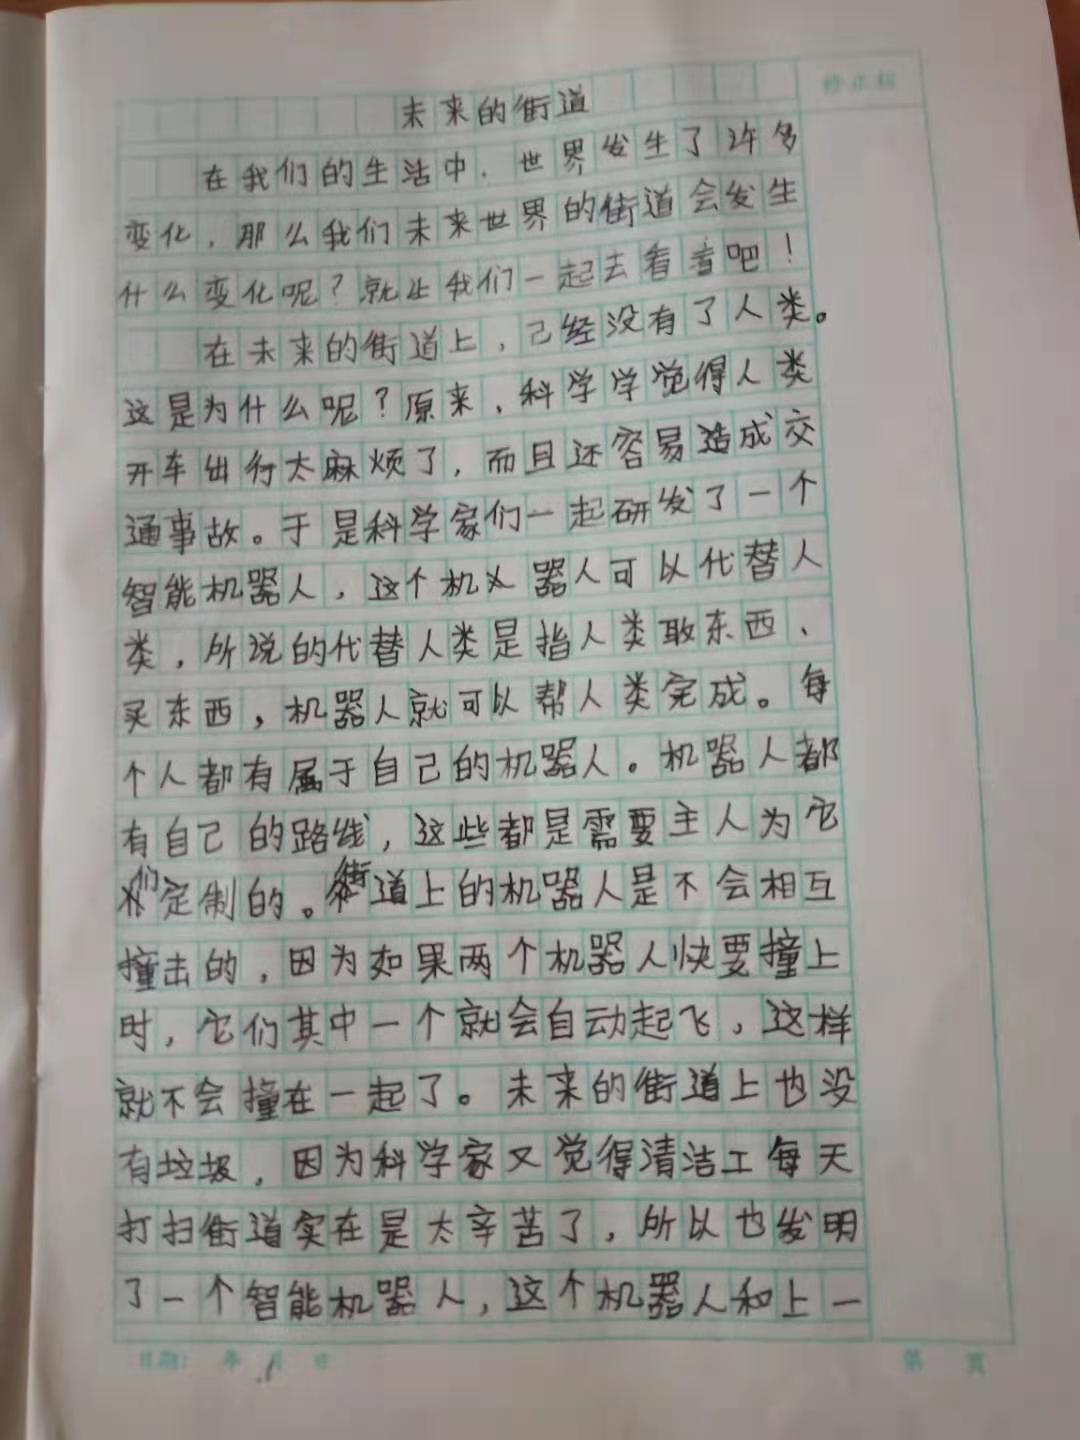 未来的街道
在我们的生活中，世界发生了许多
变化，那么我们未来世界的街道会发生
什么变化呢？就让我们一起去看看吧！
在未来的街道上，己经没有了人类。
这是为什么呢？原来，科学学觉得人类
开车出行太麻烦了，而且还容易造成交
通事故。于是科学家们一起研发了一个
智能机器人，这个机器人可以代替人
类，所说的代替人类是指人类取东西、
买东西，机器人就可以帮人类完成。每
个人都有属于自己的机器人。机器人都
有自己的路线，这些都是需要主人为它
们定制的。街道上的机器人是不会相互
撞击的，因为如果两个机器人快要撞上
时，它们其中一个就会自动起飞，这样
就不会撞在一起了。未来的街道上也没
有垃圾，因为科学家又觉得清洁工每天
打扫街道实在是太辛苦了，所以也发明
了一个智能机器人，这个机器人和上一
日期： 年 月 日 第 页